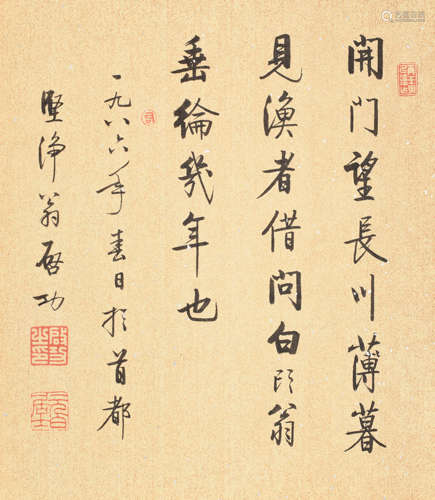 開門望長川薄暮
見漁者借問白頭翁
垂綸幾年也
一九八六年春日於首都
堅净翁啟功